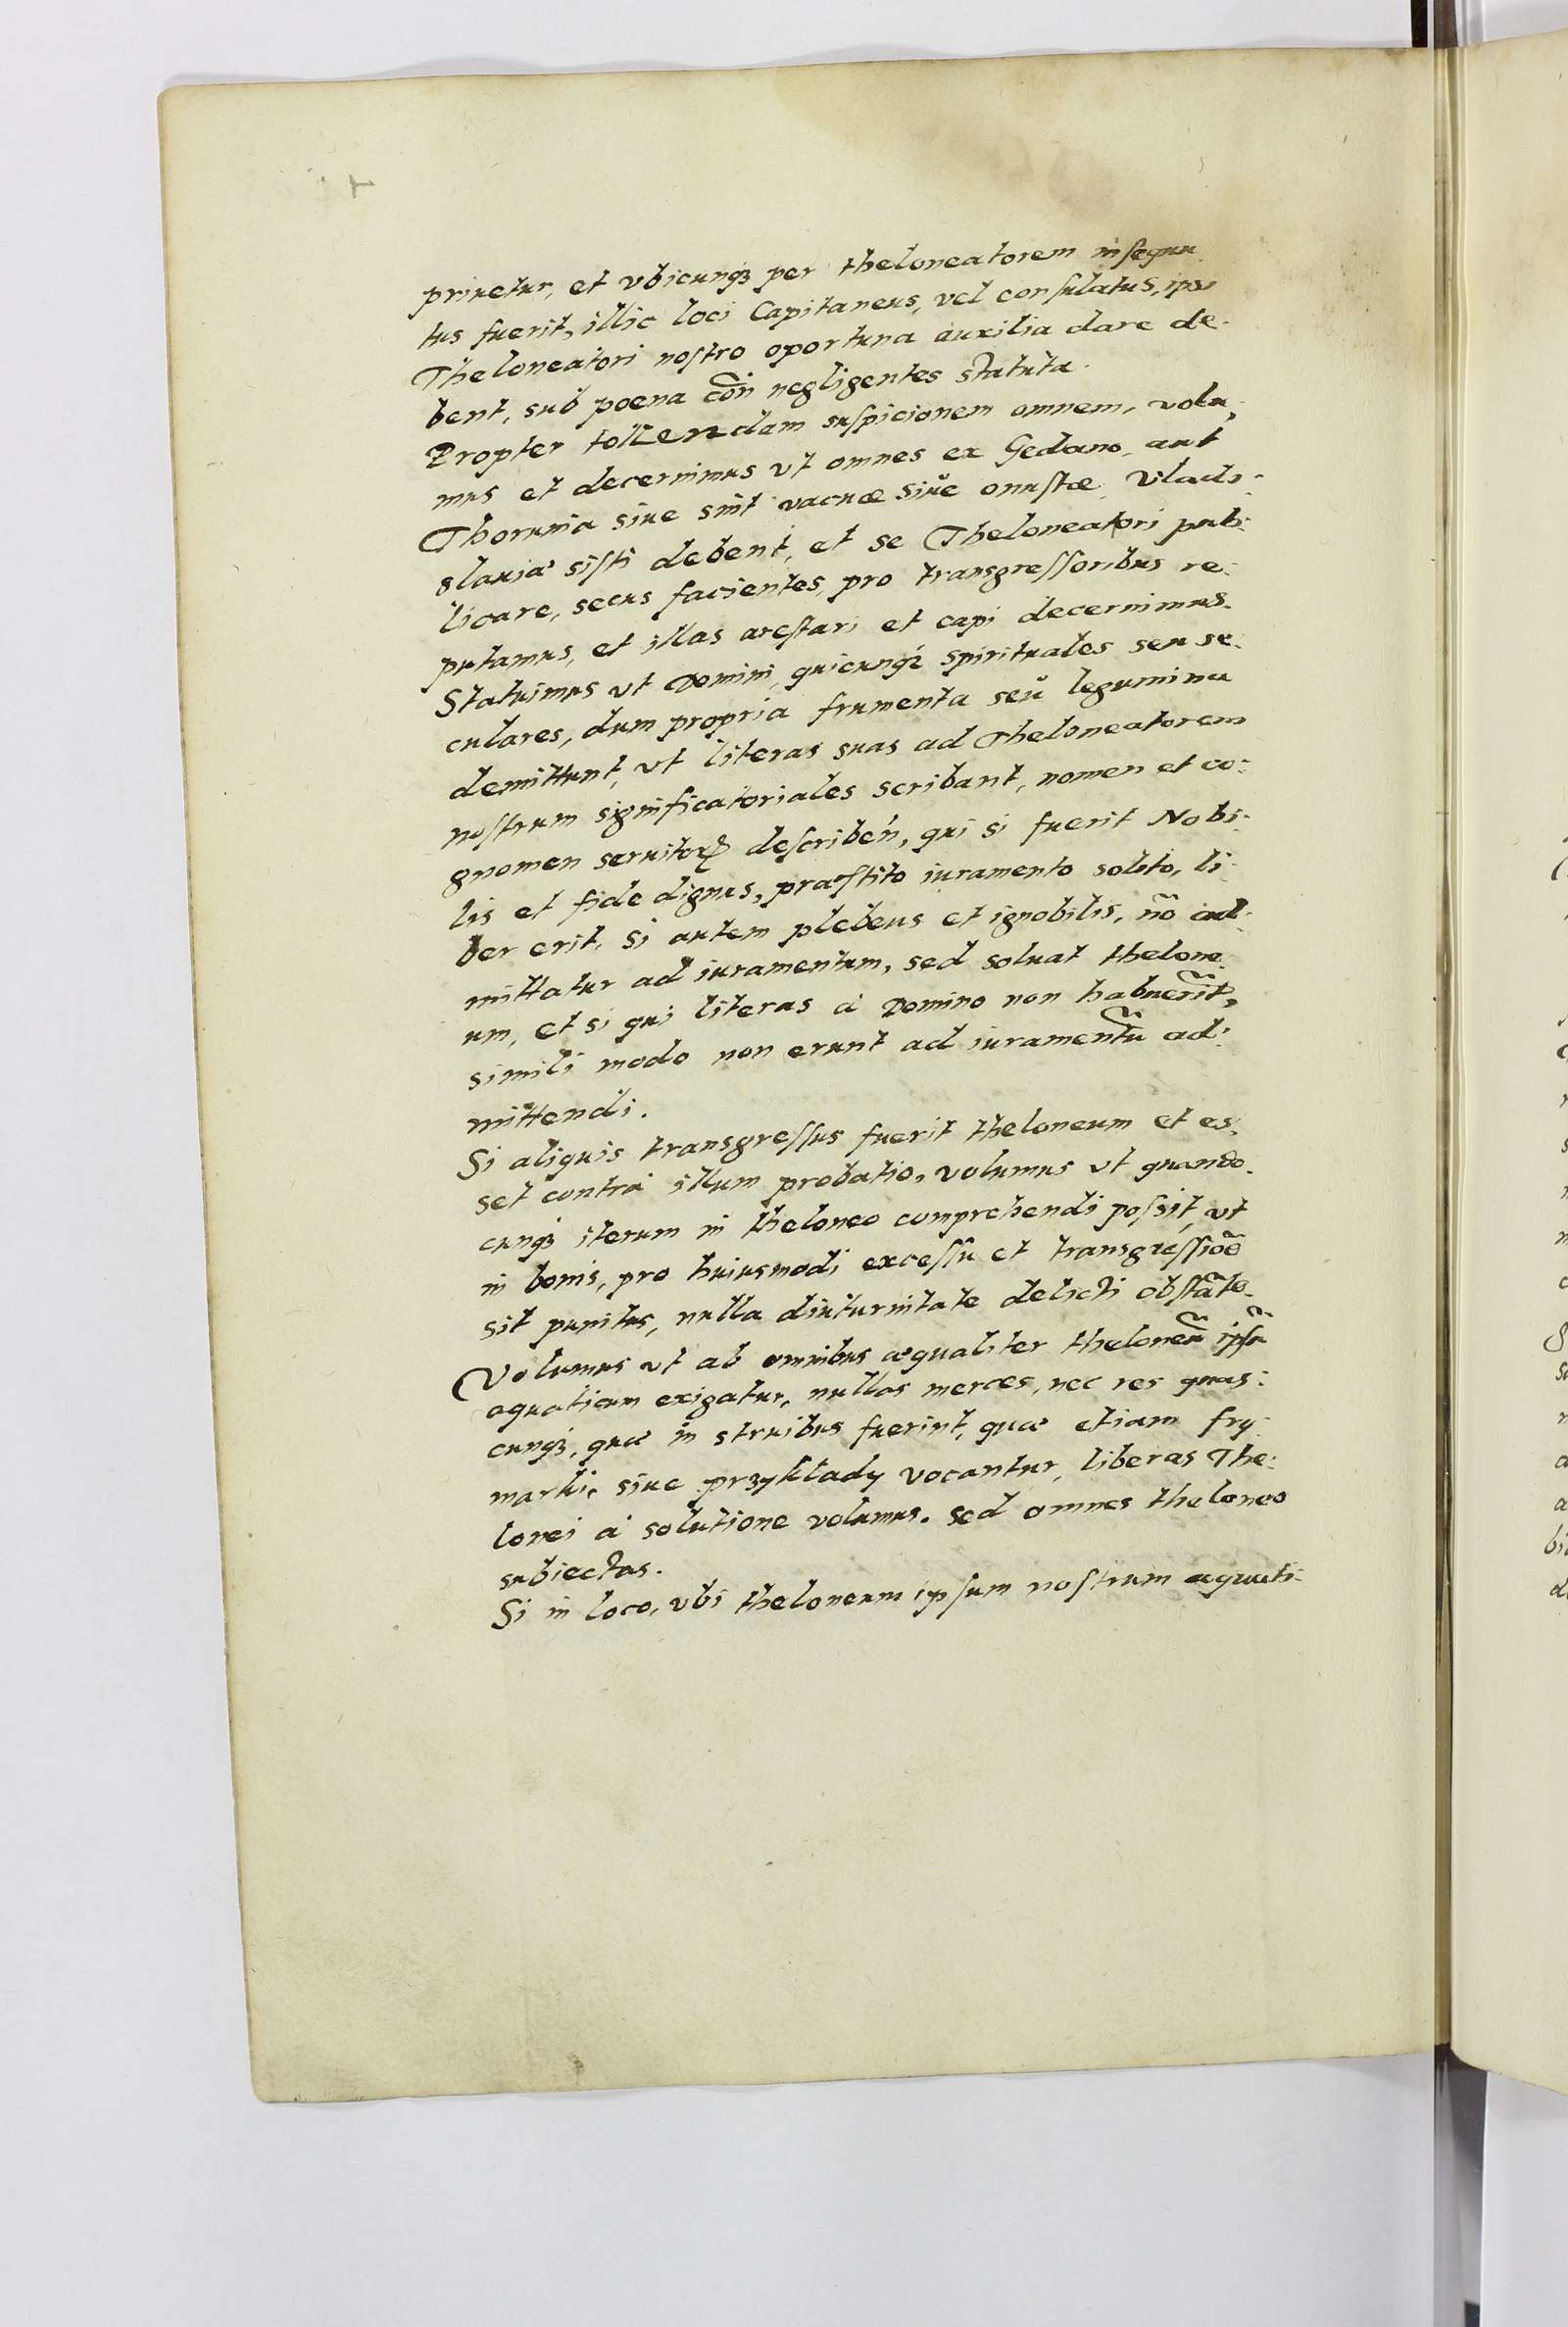 priuetur, et vbicunqȝ per theloneatorem insequu
tus fuerit, illic loci Capitaneus, vel consulatus, ipsi
Theloneatori nostro oportuna auxilia dare de-
bent, sub poena con̄ negligentes statuta.
Propter tollendam suspicionem omnem, volu-
mus et decernimus vt omnes ex Gedano, aut
Thorunia siue sint vacuæ siue onustæ, Vladi-
slauiæ sisti debent, et se Theloneatori pub-
licare, secus facientes, pro transgressoribus re-
putamus, et illas arestari et capi decernimus.
Statuimus vt Domini, quicunqȝ spirituales seu se-
culares, dum propria frumenta seu legumina
demittunt, vt literas suas ad Theloneatorem
nostrum significatoriales scribant, nomen et co-
gnomen seruitorꝝ describeń, qui si fuerit Nobi-
lis et fide dignus, præstito iuramento solito, li-
ber erit, si autem plebeus et ignobilis, nō ad-
mittatur ad iuramentum, sed soluat thelone-
um, et si qui literas à Domino non habuerīt,
simili modo non erunt ad iuramentū ad-
mittendi.
Si aliquis transgressus fuerit theloneum et es-
set contra illum probatio, volumus vt quando-
cunqȝ iterum in theloneo comprehendi possit, vt
in bonis, pro huiusmodi excessu et transgressiōē
sit punitus, nulla diuturnitate delicti obstāte.
Volumus vt ab omnibus æqualiter theloneū ipsū
aquaticum exigatur, nullas merces, nec res quas-
cunqȝ, quæ in struibus fuerint, quæ etiam fry-
marki, siue przykłady vocantur, liberas The-
lonei à solutione volumus. sed omnes theloneo
subiectas.
Si in loco, vbi theloneum ipsum nostrum aquati-